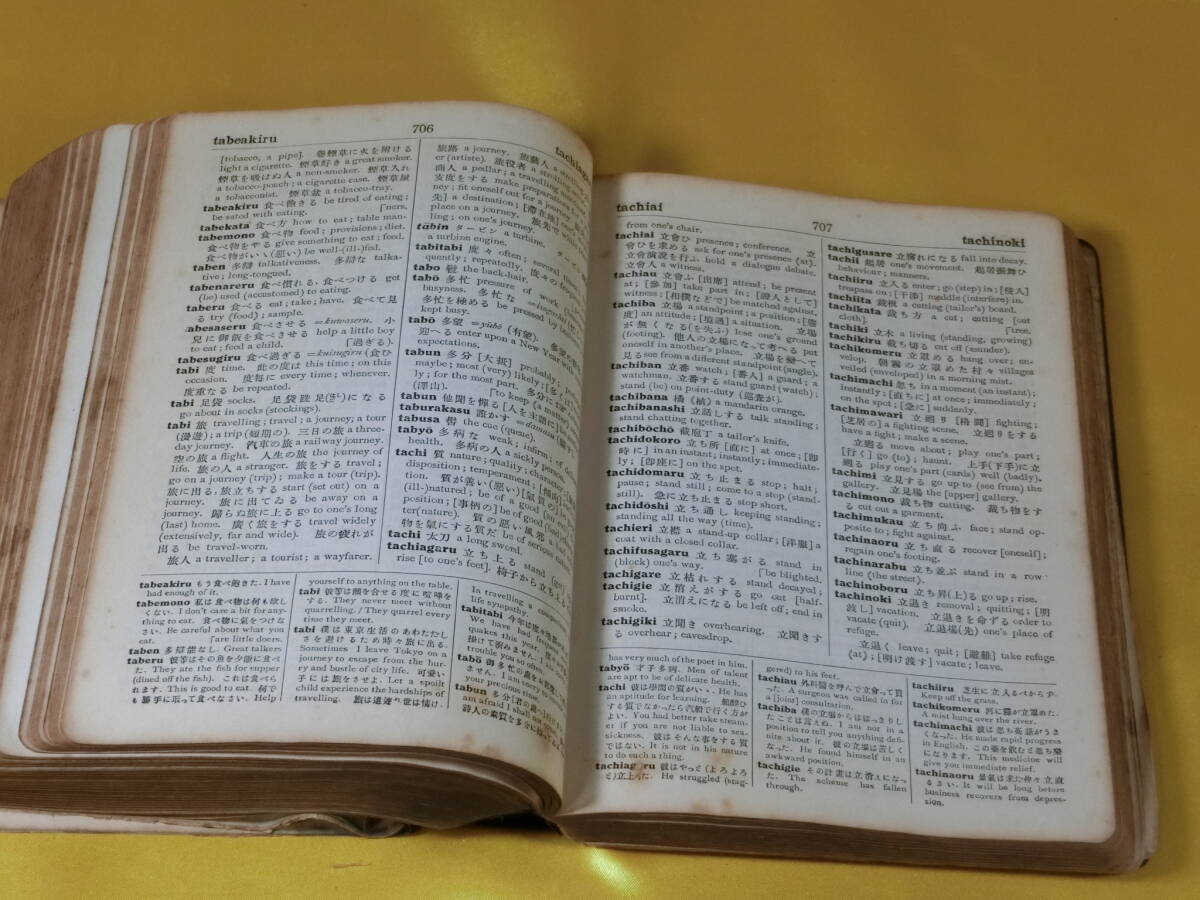 tabeakiru
706
[tobacco, a pipe]. 卷煙草に火を附ける
light a cigarette. 煙草好き a great smoker.
煙草を吸はぬ人 a non-smoker. 煙草入れ
a tobacco-pouch; a cigarette case. 煙草屋
a tobacconist. 煙草盆 a tobacco-tray.
tabeakiru 食べ飽きる be tired of eating;
be sated with eating. [ners.
tabekata 食べ方 how to eat; table man-
tabemono 食べ物 food; provisions; diet.
食べ物をやる give something to eat; feed.
食べ物がいい(惡い) be well-(ill-)fed.
taben 多辯 talkativeness. 多辯な talka-
tive; long-tongued.
tabenareru 食べ慣れる, 食べつける get
(be) used (accustomed) to eating.
taberu 食べる eat; take; have. 食べて見
る try (food); sample.
tabesaseru 食べさせる =kuwaseru. 小
兒に御飯を食べさせる help a little boy
to eat; feed a child. [過ぎる).
tabesugiru 食べ過ぎる =kuisugiru (食ひ
tabi 度 time. 此の度は this time; on this
occasion. 度每に every time; whenever.
度重なる be repeated.
tabi 足袋 socks. 足袋跣足になる
go about in socks (stockings).
tabi 旅 travelling; travel; a journey; a tour
(漫遊); a trip (短期の). 三日の旅 a three-
day journey. 汽車の旅 a railway journey.
空の旅 a flight. 人生の旅 the journey of
life. 旅の人 a stranger. 旅をする travel;
go on a journey (trip); make a tour (trip).
旅に出る, 旅立ちする start (set out) on a
journey. 旅に出てゐる be away on a
journey. 歸らぬ旅に上る go to one's long
(last) home. 廣く旅をする travel widely
(extensively, far and wide). 旅の疲れが
出る be travel-worn.
旅人 a traveller; a tourist; a wayfarer.
旅路 a journey. 旅藝人 a
er (artiste). 旅役者 a strolling
商人 a pedlar; a travelling
支度をする make preparations
ney; fit oneself out for a journey.
先] a destination; [滯在地]
place on a journey. 旅先で while
ling; on one's journey.
tābin タービン a turbine.
a turbine engine.
tabitabi 度々 often; several times;
quently; repeatedly. 度々の
tabo 髱 the back-hair.
tabō 多忙 pressure of work;
busyness. 多忙な
多忙を極める be pressed by
kept busy.
tabō 多望 =yūbō (有望). 多望の
迎へる enter upon a New Year with
expectations.
tabun 多分 [大抵] probably;
maybe; most (very) likely;
ly; for the most part.
(澤山). [to keep (a matter)
tabun 他聞を憚る
taburakasu 誑かす =damasu
tabusa 髻 the cue (queue).
tabyō 多病な weak; infirm; of
health. 多病の人 a sickly person.
tachi 質 nature; quality; character;
disposition; temperament; [傾向]
tion. 質が善い(惡い)[氣質の]
(ill-)natured; be of a good
position; [事柄の] be of good (bad)
ter (nature). 質の惡い風邪
物を氣にする質だ be of serious
tachi 太刀 a long sword.
tachiagaru 立ち上る stand
rise [to one's feet]. 椅子から立ち上る
tabeakiru もう食べ飽きた. I have
had enough of it.
tabemono 私は食べ物は何も欲し
くない. I don't care a bit for any-
thing to eat. 食べ物に氣をつけな
さい. Be careful about what you
eat. [are little doers.
taben 多辯能なし. Great talkers
taberu 彼等はその魚を夕飯に食べ
た. They ate the fish for supper
(dined off the fish). これは食べら
れます. This is good to eat. 何で
も勝手に取って食べなさい. Help
yourself to anything on the table.
tabi 彼等は顏を合せる度に喧嘩を
する. They never meet without
quarrelling. / They quarrel every
time they meet.
tabi 僕は東京生活のあわただし
さを避けるため時々旅に出る.
Sometimes I leave Tokyo on a
journey to escape from the hur-
ry and bustle of city life. 可愛い
子には旅をさせよ. Let a spoilt
child experience the hardships of
travelling. 旅は道連れ世は情け.
In travelling a
life sympathy.
tabitabi 今年は度々地震
We have had frequent
quakes this year.
掛けて濟みません. I am
trouble you so often.
tabō 御多忙中の處をお邪魔
ません. I am sorry to
your precious time.
tabun 多分
am afraid I shall not
詩人の素質を多分に
tachiai
707
tachinoki
from one's chair.
tachiai 立會ひ presence; conference. 立
會ひを求める ask for one's presence (at).
立會演說を行ふ hold a dialogue debate.
立會人 a witness.
tachiau 立會ふ [出席] attend; be present
at; [參加] take part in; [證人として]
witness; [相撲などで] be matched against.
tachiba 立場 a standpoint; a position; [態
度] an attitude; [境遇] a situation. 立場
が無くなる(を失ふ) lose one's ground
(footing). 他人の立場になって考へる put
oneself in another's place. 立場を變へて
見る see from a different standpoint (angle).
tachiban 立番 watch; [番人] a guard; a
watchman. 立番する stand guard (watch);
stand (be) on point-duty (巡査が).
tachibana 橘 《植》 a mandarin orange.
tachibanashi 立話しする talk standing;
stand chatting together.
tachibōchō 裁庖丁 a tailor's knife.
tachidokoro 立ち所 [直に] at once; [卽
時に] in an instant; instantly; immediate-
ly; [卽座に] on the spot.
tachidomaru 立ち止まる stop; halt;
pause; stand still; come to a stop (stand-
still). 急に立ち止まる stop short.
tachidōshi 立ち通し keeping standing;
standing all the way (time).
tachieri 立襟 a stand-up collar; [洋服] a
coat with a closed collar.
tachifusagaru 立ち塞がる stand in
(block) one's way. [be blighted.
tachigare 立枯れする stand decayed;
tachigie 立消えがする go out [half-
burnt]. 立消えになる be left off; end in
smoke.
tachigiki 立聞き overhearing. 立聞きす
る overhear; eavesdrop.
tachigusare 立腐れになる fall into decay.
tachii 起居 one's movement. 起居振舞ひ
behaviour; manners.
tachiiru 立入る enter; go (step) in; [侵入]
trespass on; [干涉] meddle (interfere) in.
tachiita 裁板 a cutting (tailor's) board.
tachikata 裁ち方 a cut; cutting [out
cloth]. [tree.
tachiki 立木 a living (standing, growing)
tachikiru 裁ち切る cut off (asunder).
tachikomeru 立罩める hang over; en-
velop. 朝霧の立罩めた村々 villages
veiled (enveloped) in a morning mist.
tachimachi 忽ち in a moment (an instant);
instantly; [直ちに] at once; immediately;
on the spot; [急に] suddenly.
tachimawari 立廻り [格鬪] fighting;
[芝居の] a fighting scene. 立廻りをする
have a fight; make a scene.
立廻る move about; play one's part;
[行く] go (to); haunt. 上手(下手)に立
廻る play one's part (cards) well (badly).
tachimi 立見する go up to (see from the)
gallery. 立見場 the [upper] gallery.
tachimono 裁ち物 cutting. 裁ち物をす
る cut out a garment.
tachimukau 立ち向ふ face; stand op-
posite to; fight against.
tachinaoru 立ち直る recover [oneself];
regain one's footing.
tachinarabu 立ち並ぶ stand in a row
line (the street).
tachinoboru 立ち昇(上)る go up; rise.
tachinoki 立退き removal; quitting; [明
渡し] vacation. 立退きを命ずる order to
vacate (quit). 立退場(先) one's place of
refuge.
立退く leave; quit; [避難] take refuge
(at); [明け渡す] vacate; leave.
has very much of the poet in him.
tabyō 才子多病. Men of talent
are apt to be of delicate health.
tachi 彼は學問の質がいゝ. He has
an aptitude for learning. 船醉ひ
する質でなかったら汽船で行く方が
よい. You had better take steam-
er if you are not liable to sea-
sickness. 彼はそんな事をする質
ではない. It is not in his nature
to do such a thing.
tachiagaru 彼はやっと(よろよろ
と)立上った. He struggled (stag-
gered) to his feet.
tachiau 外科醫を呼んで立會って貰
った. A surgeon was called in for
a [joint] consultation.
tachiba 僕の立場からははっきりし
たことは言えぬ. I am not in a
position to tell you anything defi-
nite about it. 彼の立場は苦しく
なった. He found himself in an
awkward position.
tachigie その計畫は立消えになっ
た. The scheme has fallen
through.
tachiiru 芝生に立入るべからず.
Keep off the grass.
tachikomeru 河に霧が立罩めた.
A mist hung over the river.
tachimachi 彼は忽ち英語がうま
くなった. He made rapid progress
in English. この藥を飮むと忽ち樂
になります. This medicine will
give you immediate relief.
tachinaoru 景氣は未だ仲々立直
るまい. It will be long before
business recovers from depres-
sion.